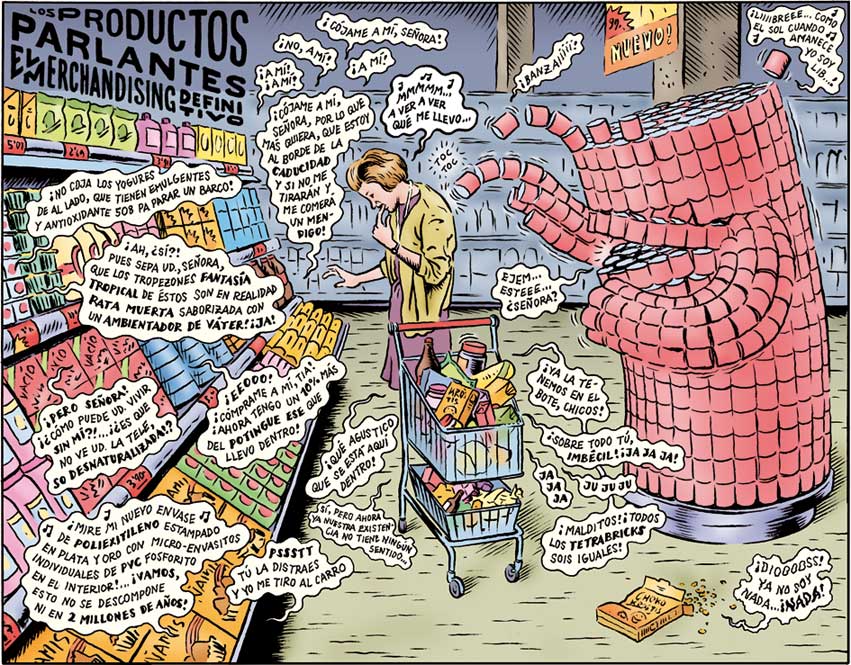 LOS PRODUCTOS
PARLANTES
EL MERCHANDISING DEFINI
TIVO
¡CÓJAME A MÍ, SEÑORA!
¡NO, A MÍ!
¡A MÍ!
¡A MÍ!
¡A MÍ!
¡CÓJAME A MÍ,
SEÑORA, POR LO QUE
MÁS QUIERA, QUE ESTOY
AL BORDE DE LA
CADUCIDAD
Y SI NO ME
TIRARÁN Y
ME COMERÁ
UN MEN-
DIGO!
MMMMM...
A VER A VER
QUÉ ME LLEVO...
TOC
TOC
¡BANZAIIIII!
99.
NUEVO!
¡LIIIIBREEE... COMO
EL SOL CUANDO
AMANECE
YO SOY
LIB...
5'01
2'69
¡NO COJA LOS YOGURES
DE AL LADO, QUE TIENEN EMULGENTES
Y ANTIOXIDANTE 508 PA PARAR UN BARCO!
¡AH, ¿SÍ?!
PUES SEPA UD., SEÑORA,
QUE LOS TROPEZONES FANTASÍA
TROPICAL DE ÉSTOS SON EN REALIDAD
RATA MUERTA SABORIZADA CON
UN AMBIENTADOR DE VÁTER! ¡JA!
EJEM...
ESTEEE...
¿SEÑORA?
VACÍO
¡PERO SEÑORA!
¡¿CÓMO PUEDE UD. VIVIR
SIN MÍ?!... ¿¡ES QUE
NO VE UD. LA TELE,
SO DESNATURALIZADA!?
¡EEOOO!
¡CÓMPRAME A MÍ, TÍA!
¡AHORA TENGO UN 10% MÁS
DEL POTINGUE ESE QUE
LLEVO DENTRO!
¡YA LA TE-
NEMOS EN EL
BOTE, CHICOS!
¡SOBRE TODO TÚ,
IMBÉCIL! ¡JA JA JA!
JA
JA
JA
JU JU JU
¡QUÉ AGUSTICO
QUE SE ESTÁ AQUÍ
DENTRO!
SÍ, PERO AHORA
YA NUESTRA EXISTEN
CIA NO TIENE NINGÚN
SENTIDO...
¡MALDITOS! ¡TODOS
LOS TETRABRICKS
SOIS IGUALES!
3'90
¡MIRE MI NUEVO ENVASE
DE POLIEXITILENO ESTAMPADO
EN PLATA Y ORO CON MICRO-ENVASITOS
INDIVIDUALES DE PVC FOSFORITO
EN EL INTERIOR!... ¡VAMOS,
ESTO NO SE DESCOMPONE
NI EN 2 MILLONES DE AÑOS!
PSSSTT
TÚ LA DISTRAES
Y YO ME TIRO AL CARRO
¡DIOOOOSS!
YA NO SOY
NADA... ¡NADA!
CHOKO